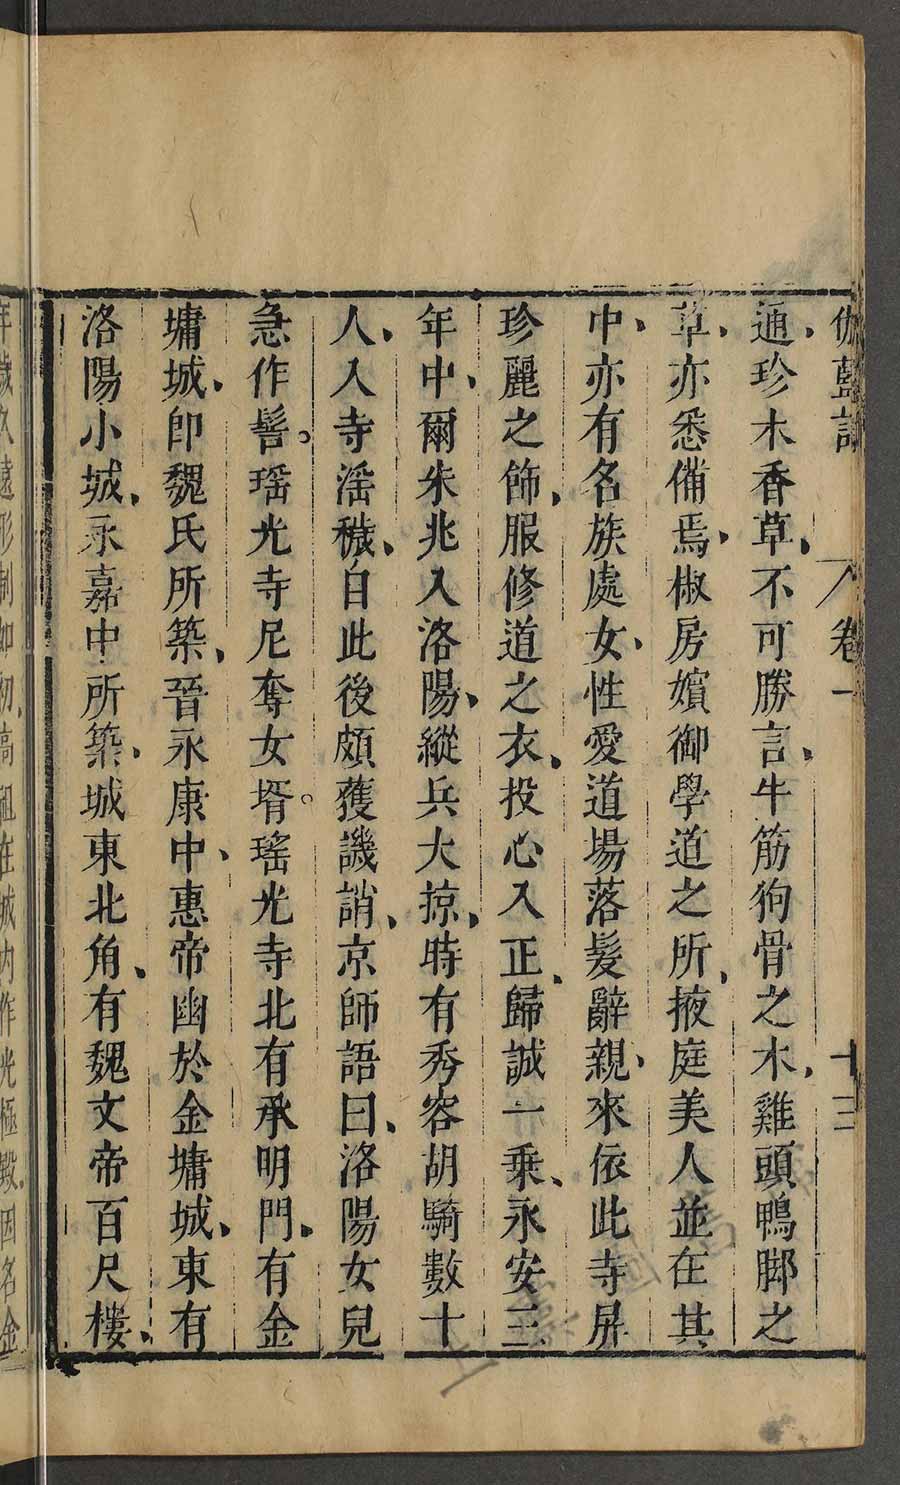 伽藍記 卷一 十三
通珍木香草不可勝言牛筋狗骨之木雞頭鴨脚之
草亦悉備焉椒房嬪御學道之所掖庭美人並在其
中亦有名族處女性愛道場落髮辭親來依此寺屏
珍麗之飾服修道之衣投心入正歸誠一乗永安三
年中爾朱兆入洛陽縱兵大掠時有秀容胡騎數十
人入寺滛穢自此後頗獲譏誚京師語曰洛陽女兒
急作髻。瑶光寺尼奪女壻。瑤光寺北有承明門有金
墉城卽魏氏所築晉永康中惠帝幽於金墉城東有
洛陽小城永嘉中所築城東北角有魏文帝百尺樓
年歲久遠形制如初高祖在城内作光極殿因名金